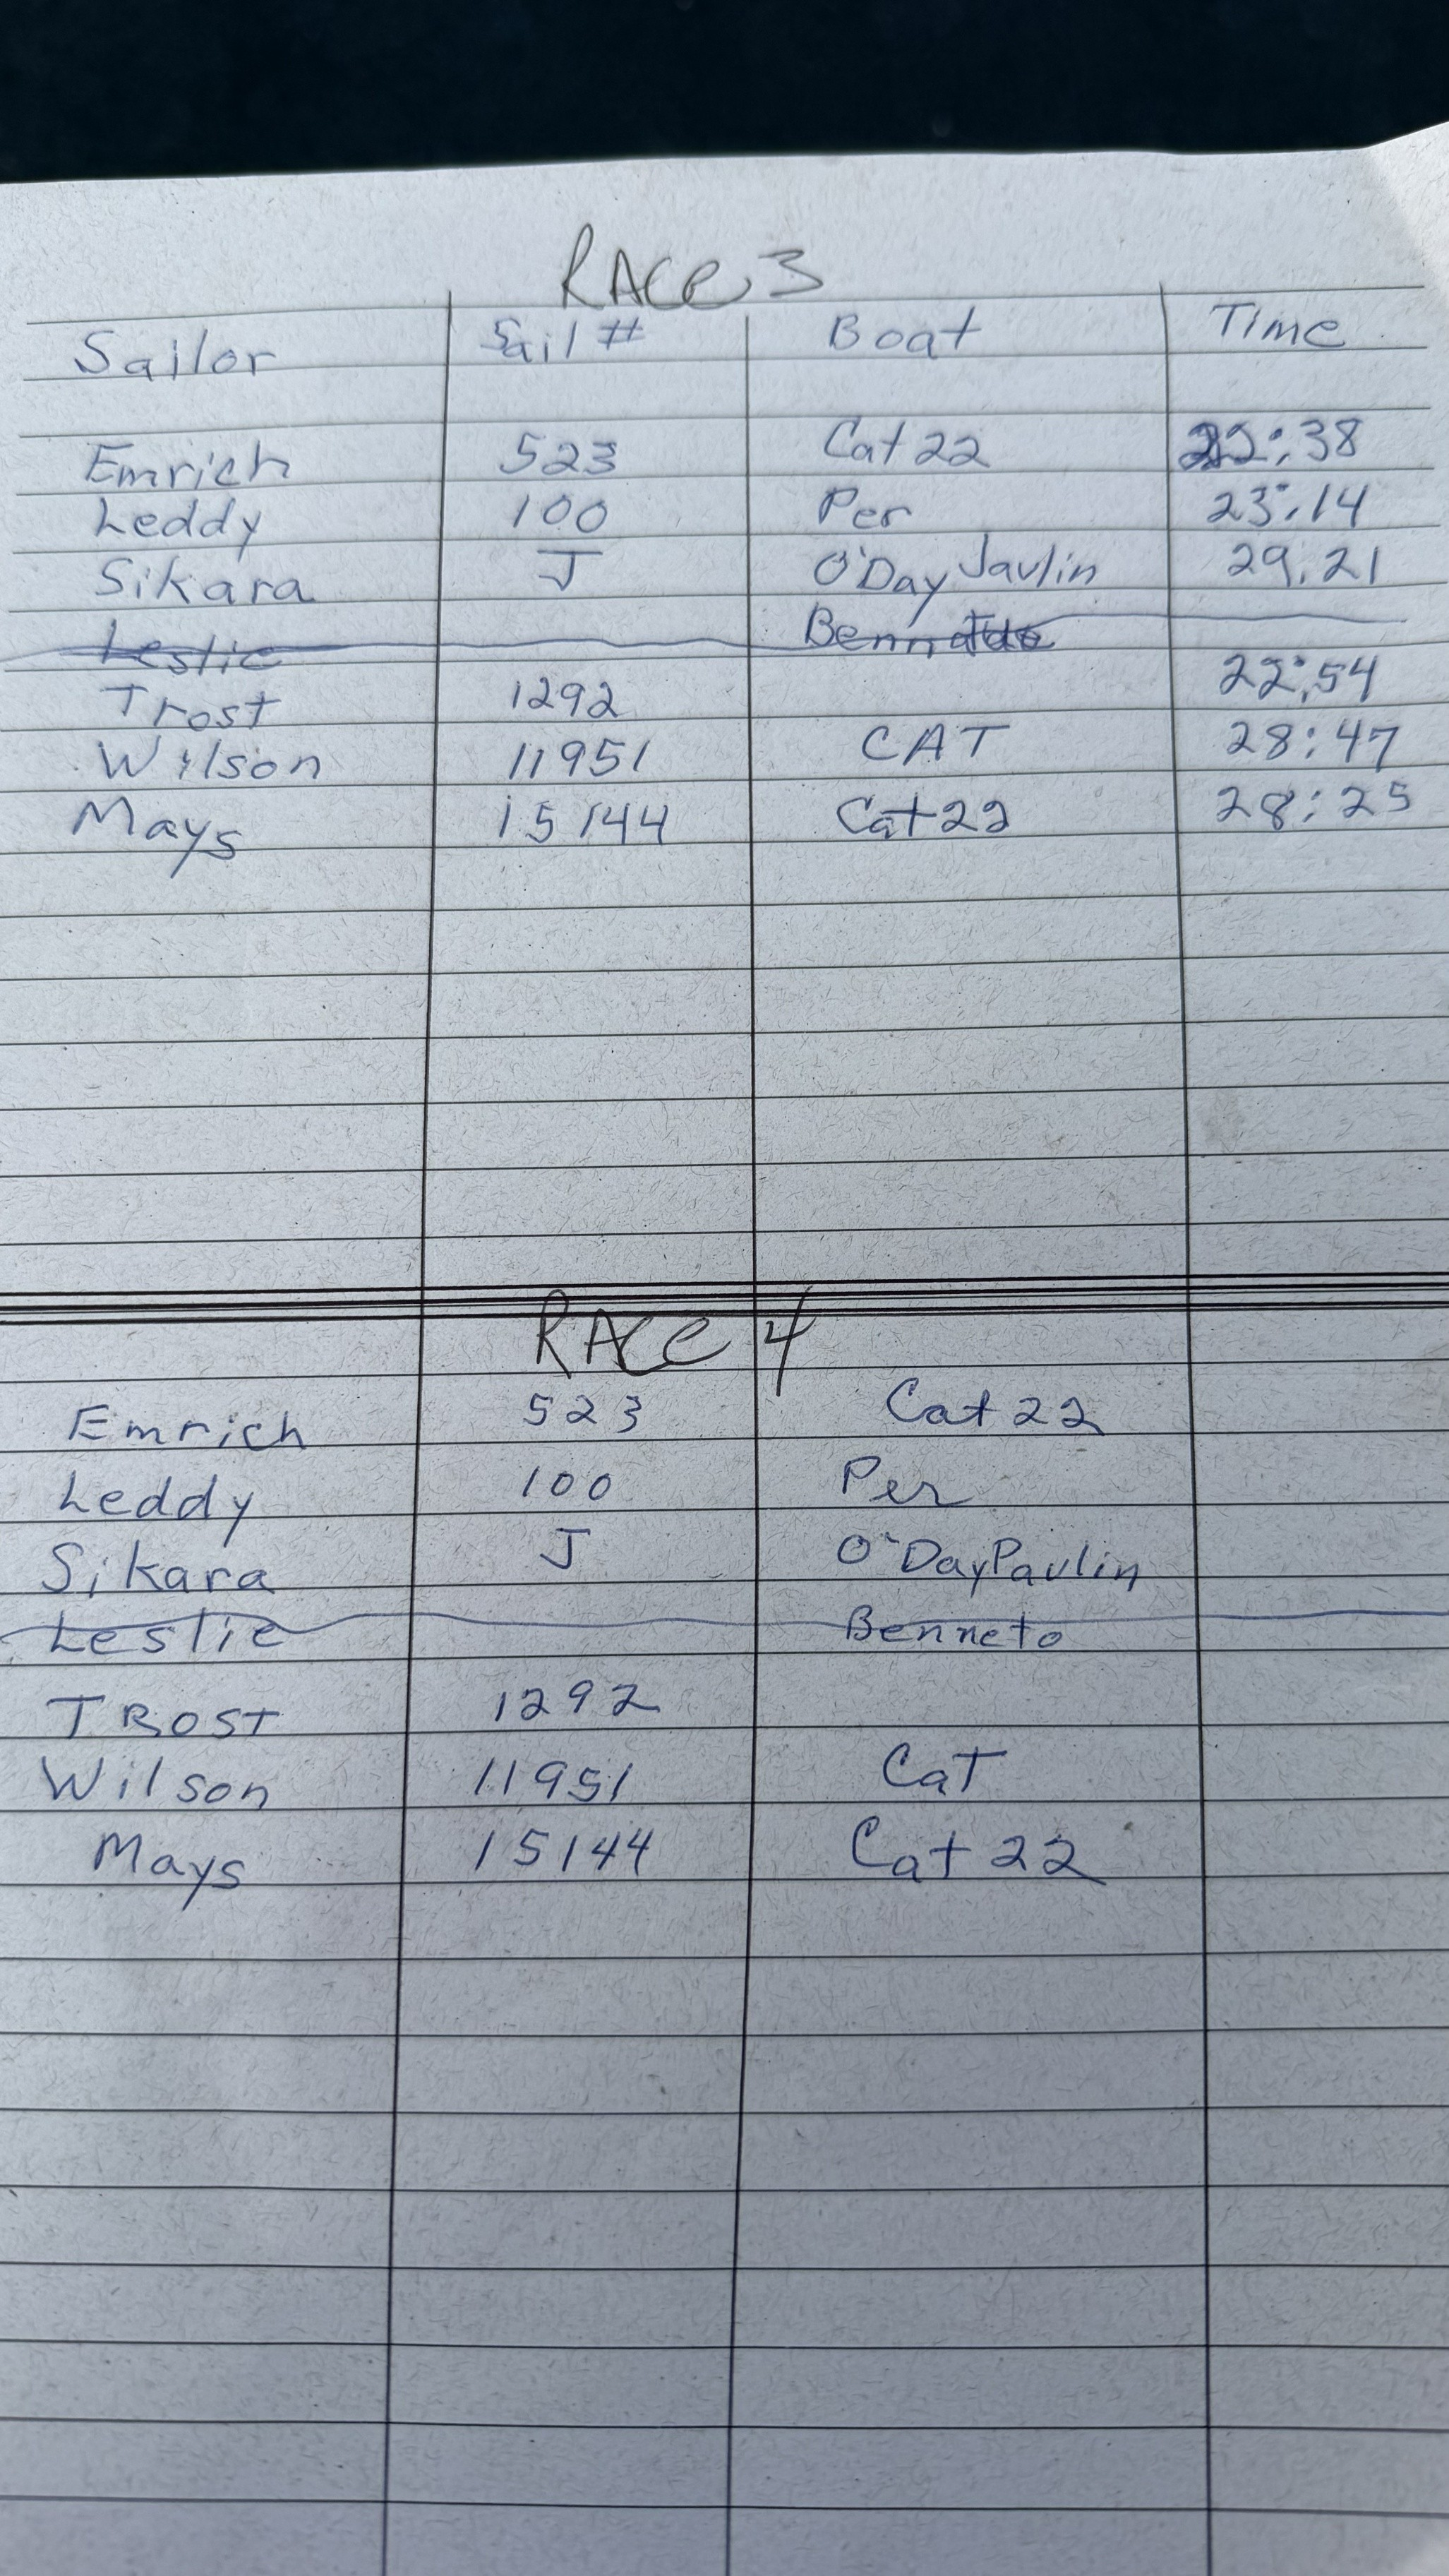 RACE 3
Sailor Sail # Boat Time
Emrich 523 Cat 22 22:38
Leddy 100 Per 23:14
Sikara J O'Day Javlin 29:21
Leslie
Trost 1292 22:54
Wilson 11951 CAT 28:47
Mays 15144 Cat 22 28:25
RACE 4
Emrich 523 Cat 22
Leddy 100 Per
Sikara J O'Day Pavlin
Leslie Benneto
TROST 1292
Wilson 11951 CaT
Mays 15144 Cat 22